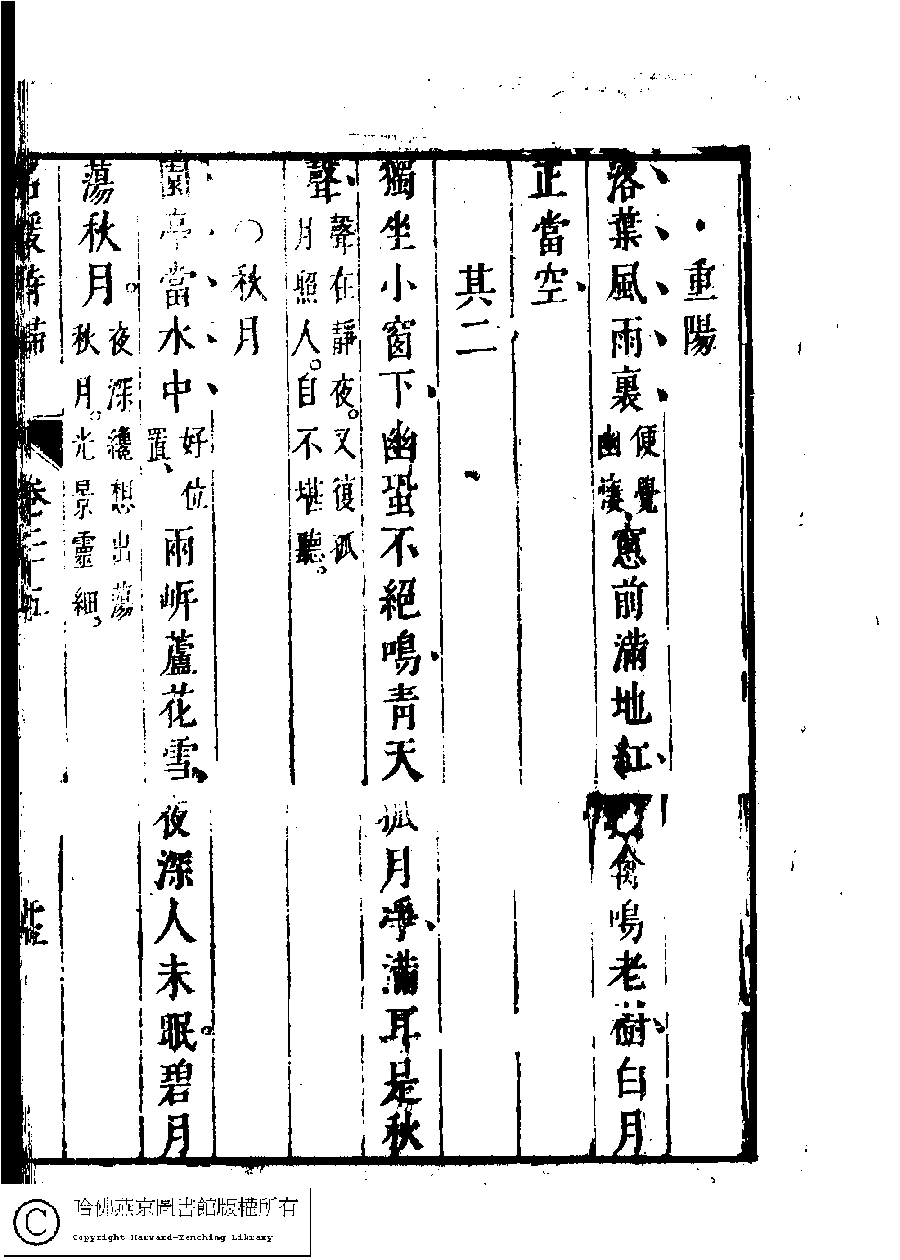 重陽
落葉風雨裏便覺幽淒窻前滿地紅禽鳴老樹白月
正當空
其二
獨坐小窗下幽蛩不絕鳴青天孤月凈滿耳是秋
聲聲在靜夜。又復孤月照人。自不堪聽。
○秋月
園亭當水中好位置、兩岍蘆花雪夜深人未眠。碧月
蕩秋月。夜深纔想出蕩秋月。光景靈細。
名媛詩 卷二十五
哈佛燕京圖書館版權所有
Copyright Harvard-Yenching Library